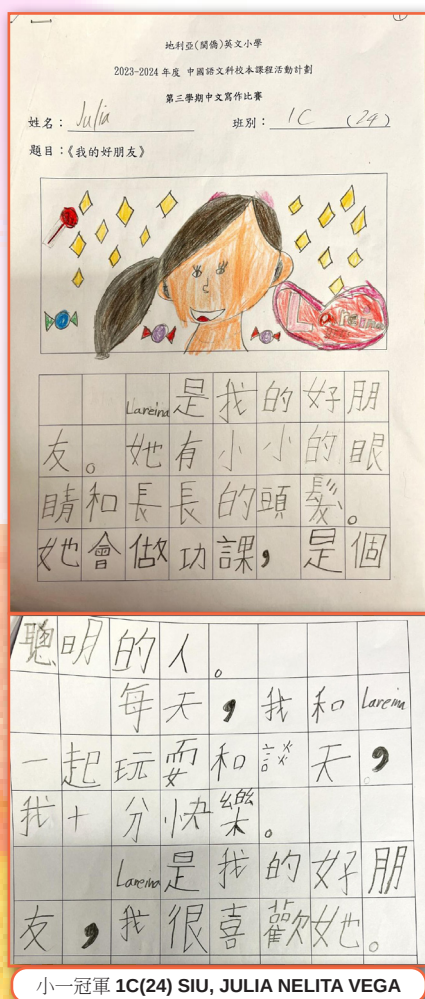 ①
地利亞(閩僑)英文小學
2023-2024 年度 中國語文科校本課程活動計劃
第三學期中文寫作比賽
姓名：Julia 班別：1C (24)
題目：《我的好朋友》
Lareina是我的好朋
友。她有小小的眼
睛和長長的頭髮。
她會做功課，是個
聰明的人。
每天，我和Lareina
一起玩耍和談天，
我十分快樂。
Lareina是我的好朋
友，我很喜歡她。
小一冠軍 1C(24) SIU, JULIA NELITA VEGA